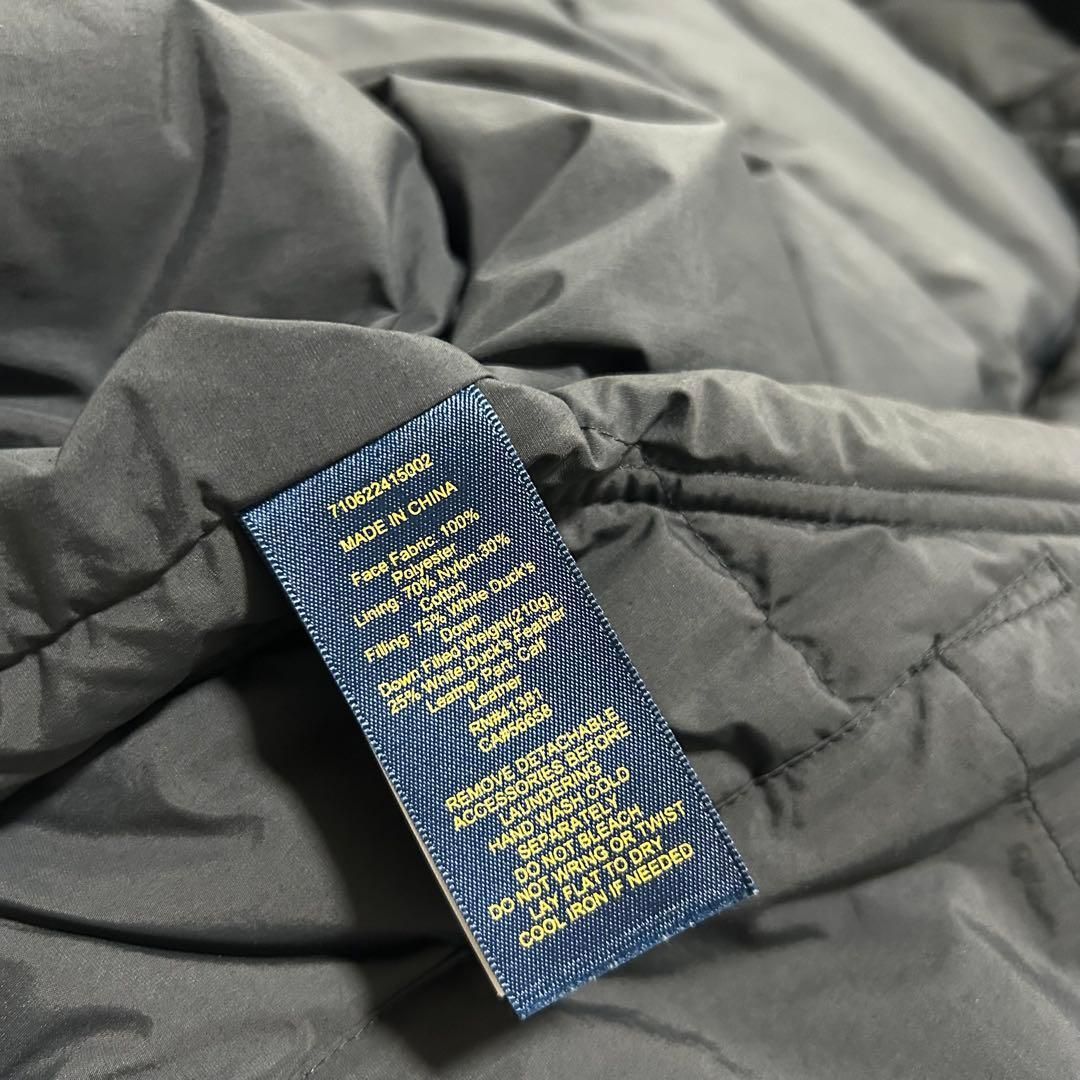 710622415002
MADE IN CHINA
Face Fabric: 100%
Polyester
Lining: 70% Nylon,30%
Cotton
Filling: 75% White Duck's
Down
Down Filled Weight(210g)
25% White Duck's Feather
Leather Part: Calf
Leather
RN#41381
CA#56656
REMOVE DETACHABLE
ACCESSORIES BEFORE
LAUNDERING
HAND WASH COLD
SEPARATELY
DO NOT BLEACH
DO NOT WRING OR TWIST
LAY FLAT TO DRY
COOL IRON IF NEEDED